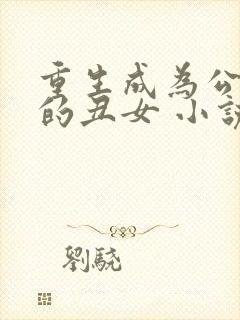 重生成為公
的丑女 小説
劉驍